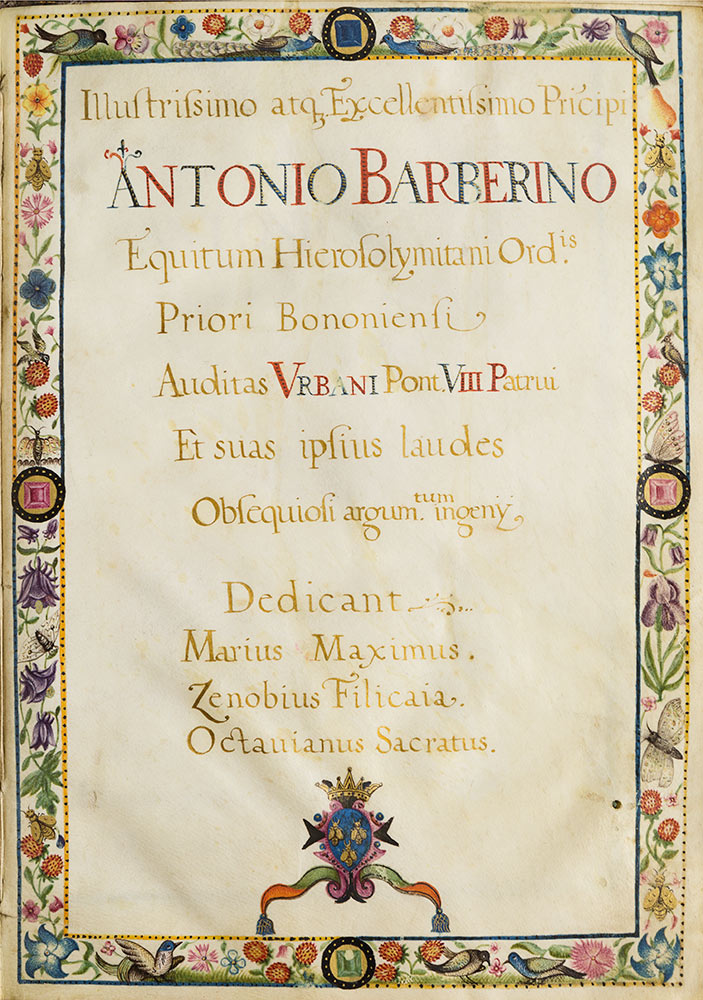 Illustrissimo atq. Excellentissimo Prīcipi
ANTONIO BARBERINO
Equitum Hierosolymitani Ord.is
Priori Bononiensi
Auditas VRBANI Pont. VIII Patrui
Et suas ipsius laudes
Obsequiosi argum.tum ingenÿ
Dedicant
Marius Maximus.
Zenobius Filicaia.
Octauianus Sacratus.